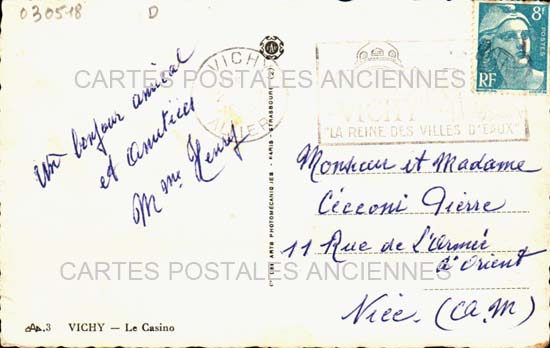 030518 D
VICHY
ALLIER
VICHY
"LA REINE DES VILLES D'EAUX"
8F
POSTES
RF
CARTES POSTALES ANCIENNES
un bonjour amical
et amitiés
Mme Henry
PARIS - STRASBOURG
Monsieur et Madame
Cécconi Pierre
11 Rue de L'Armée
d'Orient
Nice. (A.M)
CARTES POSTALES ANCIENNES
3 VICHY — Le Casino